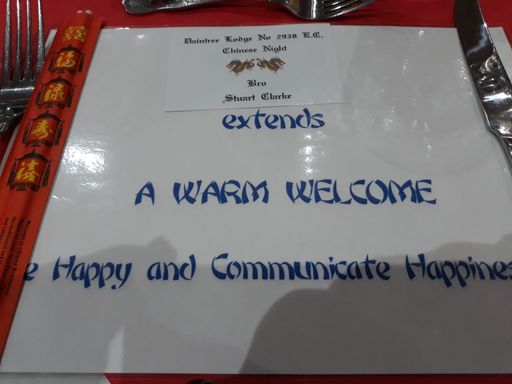 Daintree Lodge No 2938 E.C.
Chinese Night
Bro
Stuart Clarke
extends
A WARM WELCOME
e Happy and Communicate Happines
福
祿
壽